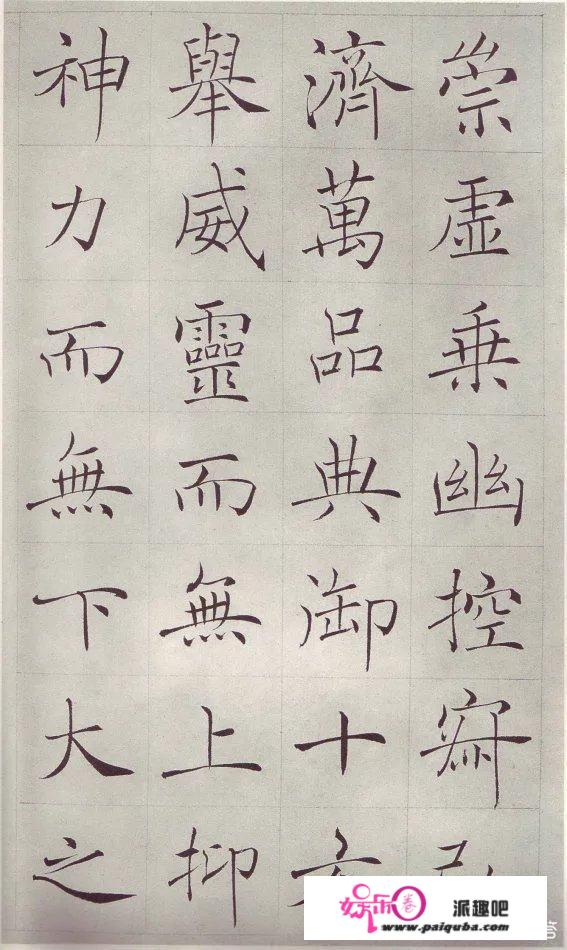 崇虛乗幽控寂弘
濟萬品典御十方
舉威靈而無上抑
神力而無下大之
娱乐卷 派趣吧
www.paiquba.com